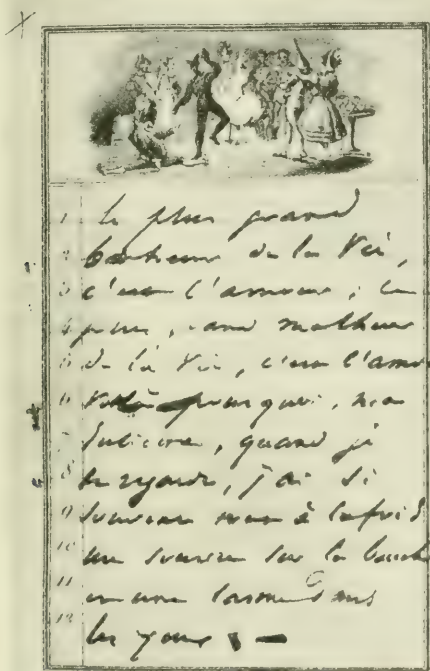 1 le plus grand
2 bonheur de la vie,
3 c'est l'amour ; le
4 plus grand malheur
5 de la vie, c'est l'amour
6 Voilà pourquoi, ma
7 Juliette, quand je
8 te regarde, j'ai si
9 souvent tout à la fois
10 un sourire sur la bouche
11 et une larme dans
12 les yeux